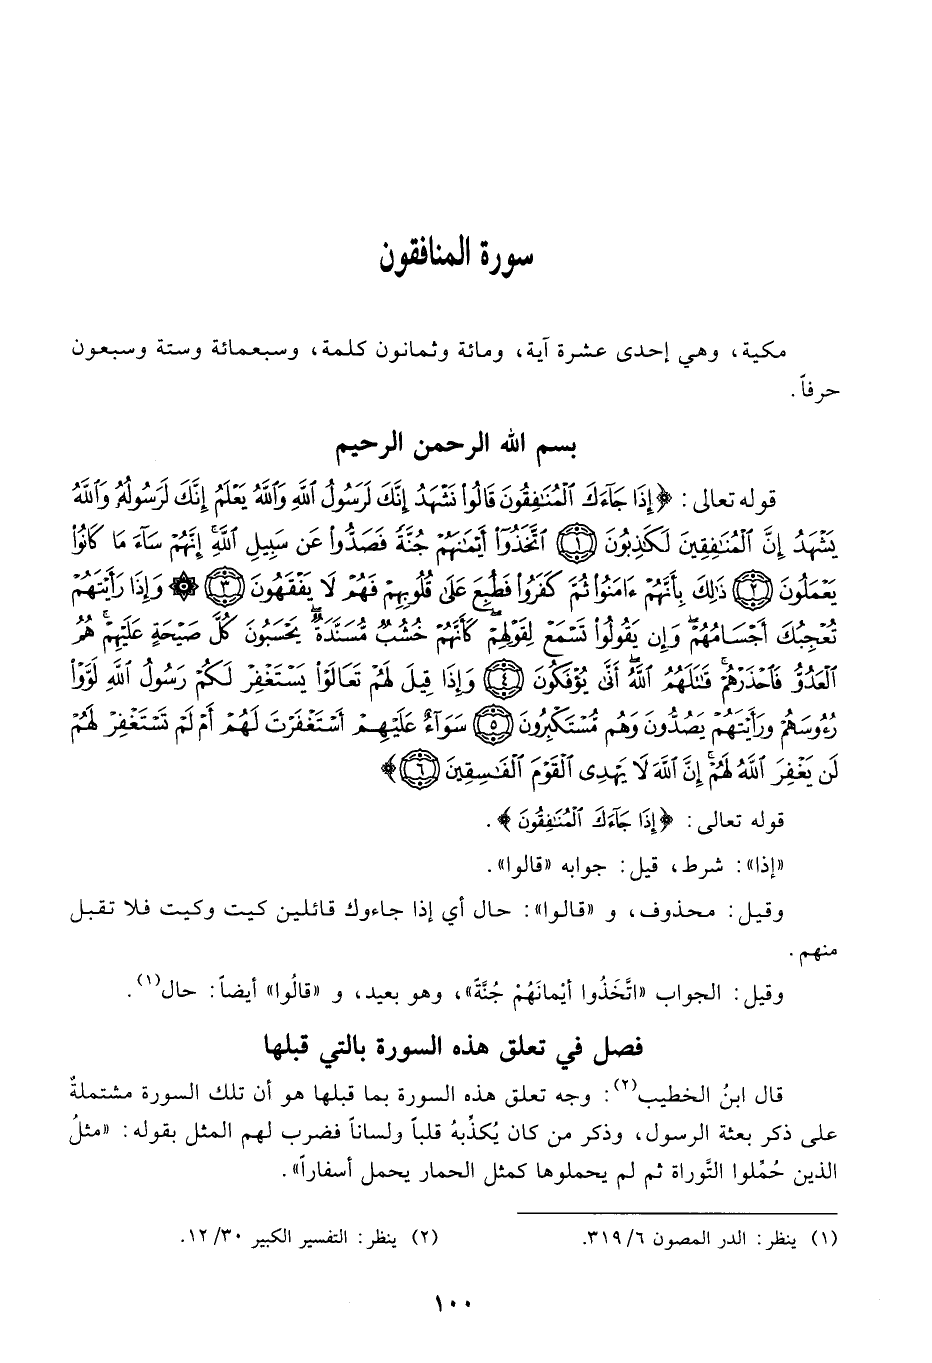 سورة المنافقون
مكية، وهي إحدى عشرة آية، ومائة وثمانون كلمة، وسبعمائة وستة وسبعون
حرفاً.
بسم الله الرحمن الرحيم
قوله تعالى: ﴿إِذَا جَآءَكَ ٱلْمُنَٰفِقُونَ قَالُوا۟ نَشْهَدُ إِنَّكَ لَرَسُولُ ٱللَّهِ وَٱللَّهُ يَعْلَمُ إِنَّكَ لَرَسُولُهُۥ وَٱللَّهُ
يَشْهَدُ إِنَّ ٱلْمُنَٰفِقِينَ لَكَٰذِبُونَ ١ ٱتَّخَذُوٓا۟ أَيْمَٰنَهُمْ جُنَّةً فَصَدُّوا۟ عَن سَبِيلِ ٱللَّهِ ۚ إِنَّهُمْ سَآءَ مَا كَانُوا۟
يَعْمَلُونَ ٢ ذَٰلِكَ بِأَنَّهُمْ ءَامَنُوا۟ ثُمَّ كَفَرُوا۟ فَطُبِعَ عَلَىٰ قُلُوبِهِمْ فَهُمْ لَا يَفْقَهُونَ ٣ ۞ وَإِذَا رَأَيْتَهُمْ
تُعْجِبُكَ أَجْسَامُهُمْ ۖ وَإِن يَقُولُوا۟ تَسْمَعْ لِقَوْلِهِمْ ۖ كَأَنَّهُمْ خُشُبٌ مُّسَنَّدَةٌ ۖ يَحْسَبُونَ كُلَّ صَيْحَةٍ عَلَيْهِمْ ۚ هُمُ
ٱلْعَدُوُّ فَٱحْذَرْهُمْ ۚ قَٰتَلَهُمُ ٱللَّهُ ۖ أَنَّىٰ يُؤْفَكُونَ ٤ وَإِذَا قِيلَ لَهُمْ تَعَالَوْا۟ يَسْتَغْفِرْ لَكُمْ رَسُولُ ٱللَّهِ لَوَّوْا۟
رُءُوسَهُمْ وَرَأَيْتَهُمْ يَصُدُّونَ وَهُم مُّسْتَكْبِرُونَ ٥ سَوَآءٌ عَلَيْهِمْ أَسْتَغْفَرْتَ لَهُمْ أَمْ لَمْ تَسْتَغْفِرْ لَهُمْ
لَن يَغْفِرَ ٱللَّهُ لَهُمْ ۚ إِنَّ ٱللَّهَ لَا يَهْدِى ٱلْقَوْمَ ٱلْفَٰسِقِينَ ٦﴾
قوله تعالى: ﴿إِذَا جَآءَكَ ٱلْمُنَٰفِقُونَ﴾.
«إذا»: شرط، قيل: جوابه «قالوا».
وقيل: محذوف، و «قالوا»: حال أي إذا جاءوك قائلين كيت وكيت فلا تقبل
منهم.
وقيل: الجواب «اتَّخَذُوا أيْمانَهُمْ جُنَّةً»، وهو بعيد، و «قالُوا» أيضاً: حال(١).
فصل في تعلق هذه السورة بالتي قبلها
قال ابنُ الخطيب(٢): وجه تعلق هذه السورة بما قبلها هو أن تلك السورة مشتملةٌ
على ذكر بعثة الرسول، وذكر من كان يُكذِّبهُ قلباً ولساناً فضرب لهم المثل بقوله: «مثلُ
الذين حُمِّلوا التَّوراة ثم لم يحملوها كمثل الحمار يحمل أسفاراً».
(١) ينظر: الدر المصون ٣١٩/٦. (٢) ينظر: التفسير الكبير ١٢/٣٠.
١٠٠